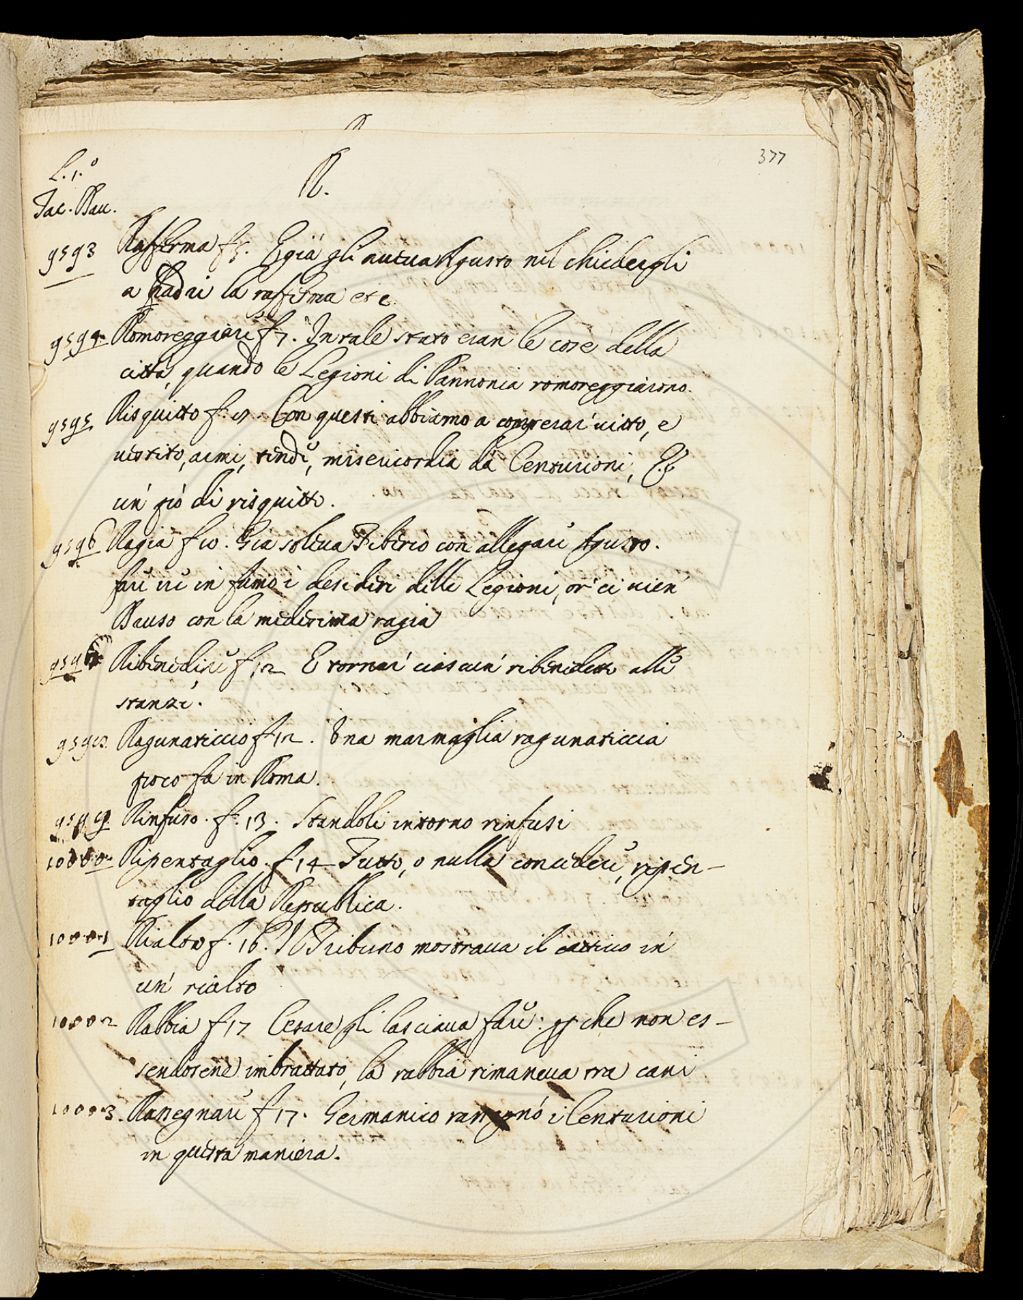 377
L. 1.º
R.
Tac. Dav.
9593 Rafferma f. 5. E già gli aveva Agusto nel chiedergli
a Padri la rafferma etc.
9594 Romoreggiare f. 7. In tale stato eran le cose della
città, quando le Legioni di Pannonia romoreggiarono.
9595 Risquitto f. 9. Con questi abbiamo a comperar vitto, e
vestito, armi, tende, misericordia da Centurioni, E
un pò di risquitto.
9596 Ragia f. 10. Gia soleva Tiberio con allegare Agusto.
fare ire in fumo i desideri delle Legioni, or ci vien
Dauso con la medesima ragia
Ribenedire f. 12 E tornar ciascun ribenedetto alle
stanze.
Ragunaticcio f. 12. Una marmaglia ragunaticcia
poco fa in Roma.
9599 Rinfuso. f. 13. Standoli intorno rinfusi
10000 Ripentaglio. f. 14 Tutto, o nulla concedere, ripen-
taglio della Republica.
10001 Rialto f. 16. Il Tribuno mostrava il cattivo in
un rialto
10002 Rabbia f. 17 Cesare gli lasciava fare: che non es-
sendosene imbrattato, la rabbia rimaneva tra cani
10003. Rassegnare f. 17. Germanico i Centurioni
in questa maniera.